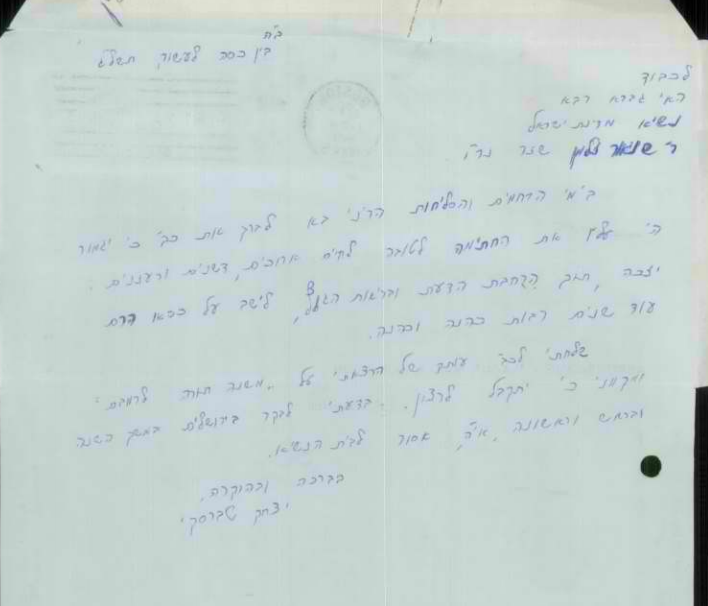 ב"ה
בין כסה לעשור, תשל"ג
לכבוד
האי גברא רבא
נשיא מדינת ישראל
ר' שניאור זלמן שזר נר"ו
בימי הרחמים והסליחות הריני בא לברך את כב' כי יגמור
ה' עליו את החתימה לטובה לחיים ארוכים, דשנים ורעננים.
יזכה, תוך הרחבת הדעת ובריאות הגוף, לישב על כסאו רם
עוד שנים רבות כהנה וכהנה.
שלחתי לכב' עותק של הרצאתי על "משנה תורה לרמבם"
ומקווני כי יתקבל לרצון. בדעתי לבקר בירושלים במשך השנה
ובראש וראשונה, אי"ה, אסור לבית הנשיא.
בברכה ובהוקרה,
יצחק טברסקי